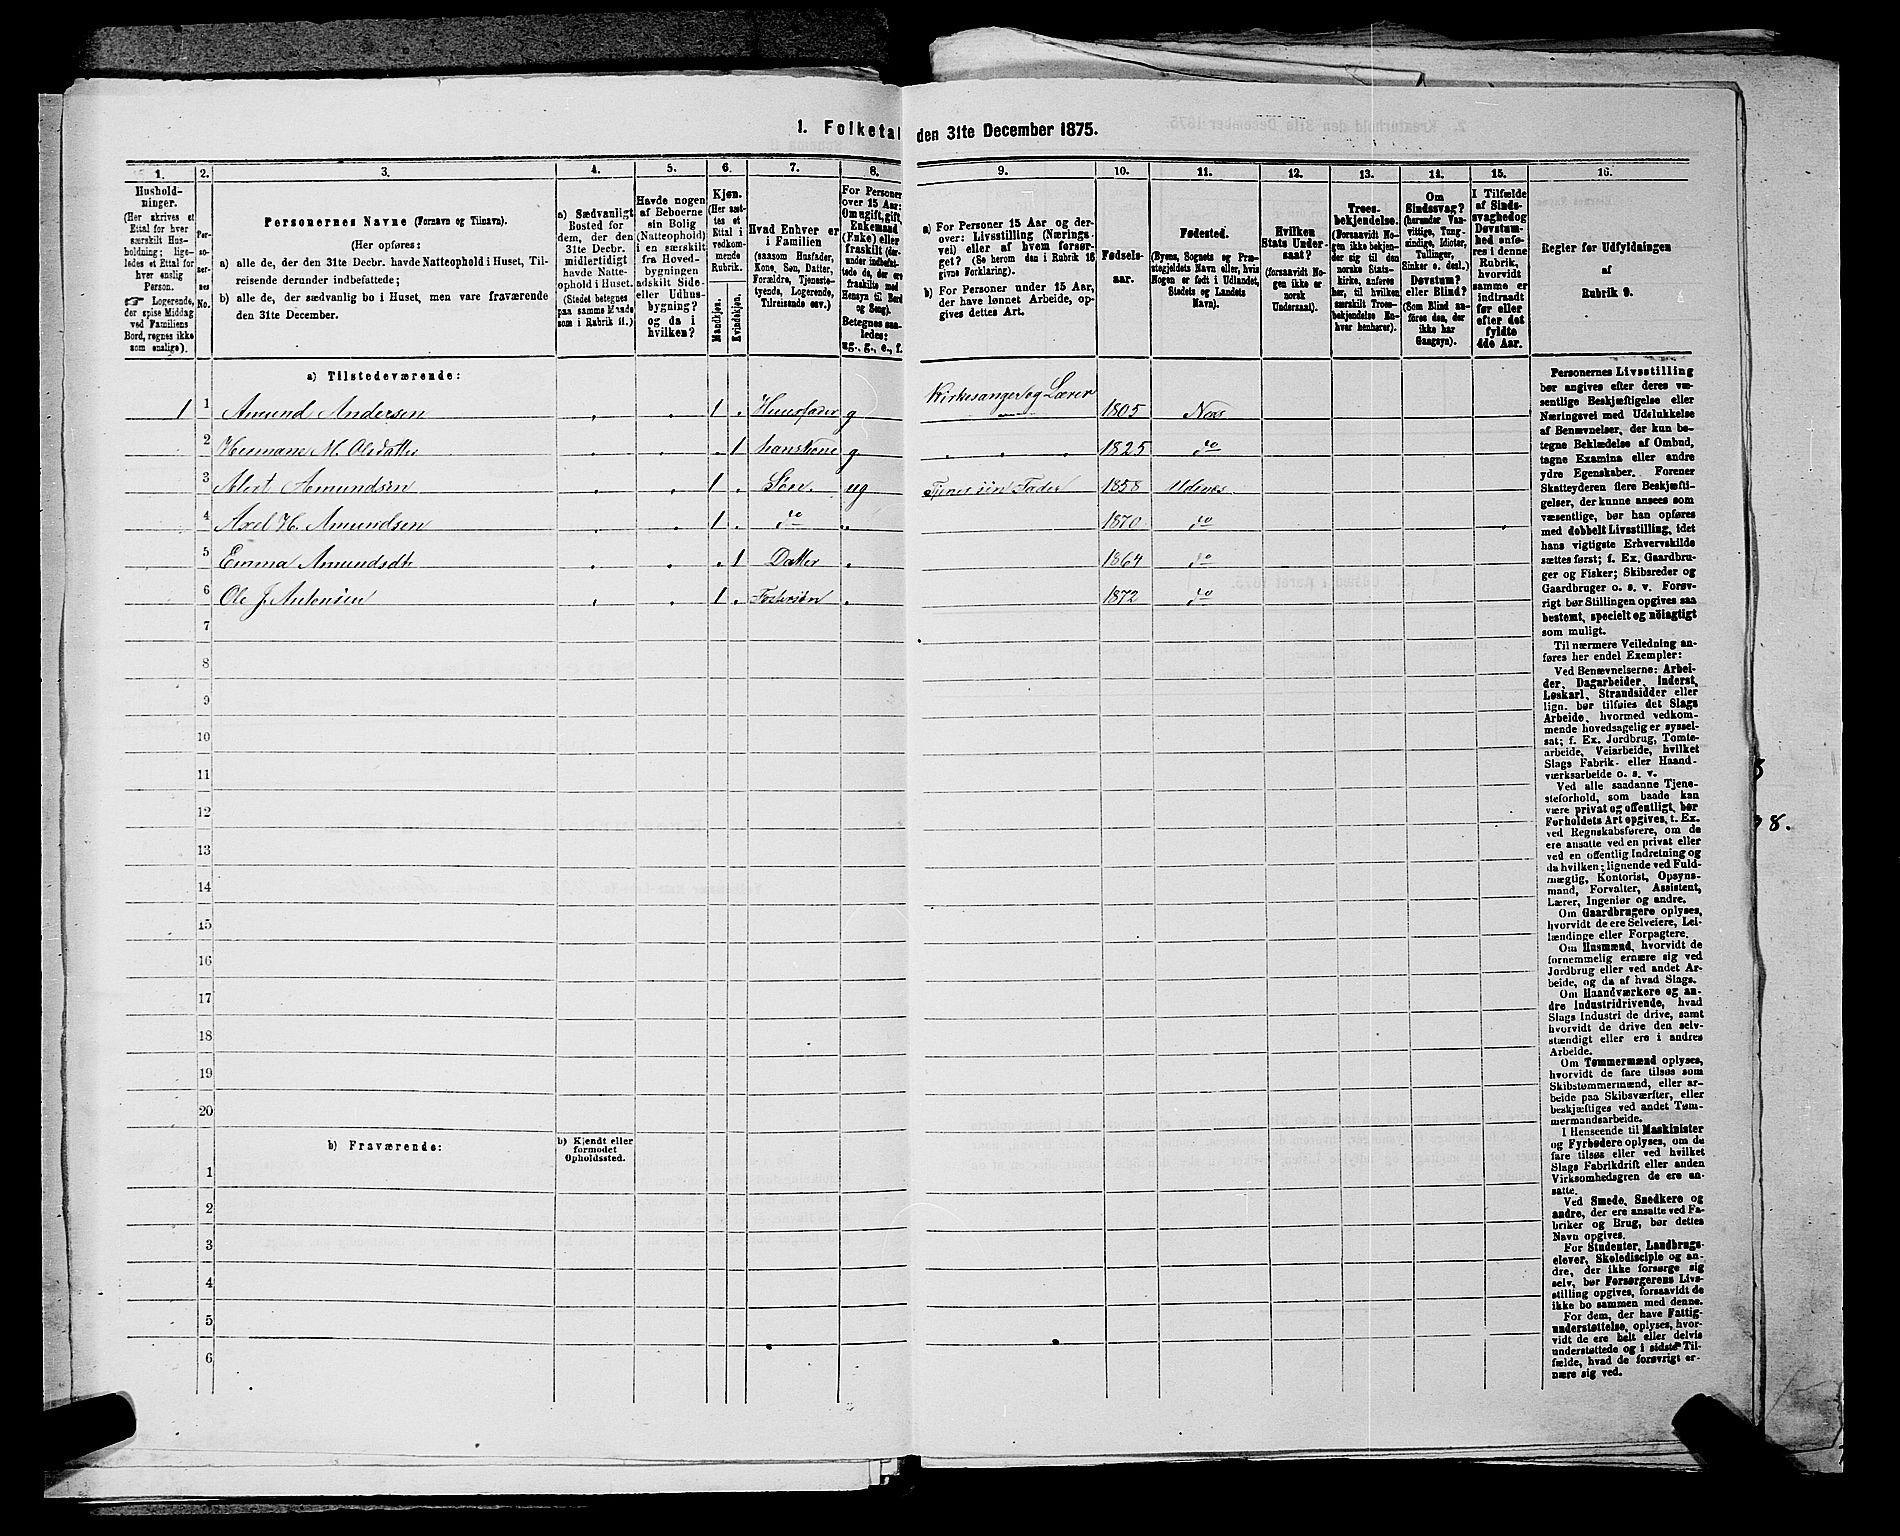 1. Folketal den 31te December 1875.
1. 2. 3. 4. 5. 6. 7. 8. 9. 10. 11. 12. 13. 14. 15. 16.
Hushold-
ninger.
(Her skrives et
Ettal for hver
særskilt Hus-
holdning; lige-
ledes et Ettal for
hver enslig
Person.
☞ Logerende,
der spise Middag
ved Familiens
Bord, regnes ikke
som enslige).
Per-
so-
ner-
nes
No.
Personernes Navne (Fornavn og Tilnavn).
(Her opføres:
a) alle de, der den 31te Decbr. havde Natteophold i Huset, Til-
reisende derunder indbefattede;
b) alle de, der sædvanlig bo i Huset, men vare fraværende
den 31te December.
a) Sædvanligt
Bosted for
dem, der den
31te Decbr.
midlertidigt
havde Natte-
ophold i Huset.
(Stedet betegnes
paa samme Maade
som i Rubrik 11.)
Havde nogen
af Beboerne
sin Bolig
(Natteophold)
i en særskilt
fra Hoved-
bygningen
adskilt Side-
eller Udhus-
bygning?
og da i
hvilken?
Kjøn.
(Her sæt-
tes et
Ettal i
vedkom-
mende
Rubrik.
Mandkjøn.
Kvindekjøn.
Hvad Enhver er
i Familien
(saasom Husfader,
Kone, Søn, Datter,
Forældre, Tjeneste-
tyende, Logerende,
Tilreisende osv.)
For Personer
over 15 Aar:
Om ugift, gift,
Enkemand
(Enke) eller
fraskilt (der-
under indbefat-
tede de, der ere
fraskilte med
Hensyn til Bord
og Seng).
Betegnes saa-
ledes:
ug., g., e., f.
a) For Personer 15 Aar og der-
over: Livsstilling (Nærings-
vei) eller af hvem forsør-
get? (Se herom den i Rubrik 16
givne Forklaring).
b) For Personer under 15 Aar,
der have lønnet Arbeide, op-
gives dettes Art.
Fødsels-
aar.
Fødested.
(Byens, Sognets og Præ-
stegjeldets Navn eller, hvis
Nogen er født i Udlandet,
Stedets og Landets
Navn).
Hvilken
Stats Under-
saat?
(forsaavidt No-
gen ikke er
norsk
Undersaat).
Troes-
bekjendelse.
(Forsaavidt No-
gen ikke bekjen-
der sig til den
norske Stats-
kirke, anføres
her, til hvilken
særskilt Troes-
bekjendelse En-
hver henhører).
Om
Sindssvag?
(herunder Van-
vittige, Tung-
sindige, Idioter,
Tullinger,
Sinker o. desl.)
Døvstum?
eller Blind?
(Som Blind an-
føres den, der
ikke har
Gangsyn).
I Tilfælde
af Sinds-
svaghed og
Døvstum-
hed anfø-
res i denne
Rubrik,
hvorvidt
samme er
indtraadt
før eller
efter det
fyldte
4de Aar.
Regler for Udfyldningen
af
Rubrik 9.
a) Tilstedeværende:
1 1 Amund Andersen 1 Huusfader g Kirkesanger og Lærer 1805 Næs
2 Hermane M. Olsdatter 1 hans Kone g 1825 do
3 Albert Amundsen 1 Søn ug Tjener sin Fader 1858 Udenes
4 Axel H. Amundsen 1 do 1870 do
5 Emma Amundsdt 1 Datter 1864 do
6 Ole J. Antonsen 1 Fostersøn 1872 do
7
8
9
10
11
12
13
14
15
16
17
18
19
20
b) Fraværende:
b) Kjendt eller
formodet
Opholdssted.
1
2
3
4
5
6
Personernes Livsstilling
bør angives efter deres væ-
sentlige Beskjæftigelse eller
Næringsvei med Udelukkelse
af Benævnelser, der kun be-
tegne Beklædelse af Ombud,
tagne Examina eller andre
ydre Egenskaber. Forener
Skatteyderen flere Beskjæfti-
gelser, der kunne ansees som
væsentlige, bør han opføres
med dobbelt Livsstilling, idet
hans vigtigste Erhvervskilde
sættes først; f. Ex. Gaardbru-
ger og Fisker; Skibsreder og
Gaardbruger o. s. v. Forøv-
rigt bør Stillingen opgives saa
bestemt, specielt og nöiagtigt
som muligt.
Til nærmere Veiledning an-
føres her endel Exempler:
Ved Benævnelserne: Arbei-
der, Dagarbeider, Inderst,
Løskarl, Strandsidder eller
lign. bør tilføies det Slags
Arbeide, hvormed vedkom-
mende hovedsagelig er syssel-
sat; f. Ex. Jordbrug, Tomte-
arbeide, Veiarbeide, hvilket
Slags Fabrik- eller Haand-
værksarbeide o. s. v.
Ved alle saadanne Tjene-
steforhold, som baade kan
være privat og offentligt, bør
Forholdets Art opgives, t. Ex.
ved Regnskabsførere, om de
ere ansatte ved en privat eller
ved en offentlig Indretning og
da hvilken; lignende ved Fuld-
mægtig, Kontorist, Opsyns-
mand, Forvalter, Assistent,
Lærer, Ingeniør og andre.
Om Gaardbrugere oplyses,
hvorvidt de ere Selveiere, Lei-
lændinge eller Forpagtere.
Om Husmænd, hvorvidt de
fornemmelig ernære sig ved
Jordbrug eller ved andet Ar-
beide, og da af hvad Slags.
Om Haandværkere og an-
dre Industridrivende, hvad
Slags Industri de drive, samt
hvorvidt de drive den selv-
stændigt eller ere i andres
Arbeide.
Om Tømmermænd oplyses,
hvorvidt de fare tilsøs som
Skibstømmermænd, eller ar-
beide paa Skibsværfter, eller
beskjæftiges ved andet Tøm-
mermandsarbeide.
I Henseende til Maskinister
og Fyrbødere oplyses, om de
fare tilsøs eller ved hvilket
Slags Fabrikdrift eller anden
Virksomhedsgren de ere an-
satte.
Ved Smede, Snedkere og
andre, der ere ansatte ved Fa-
briker og Brug, bør dettes
Navn opgives.
For Studenter, Landbrugs-
elever, Skoledisciple og an-
dre, der ikke forsørge sig
selv, bør Forsørgerens Livs-
stilling opgives, forsaavidt de
ikke bo sammen med denne.
For dem, der have Fattig-
understøttelse, oplyses, hvor-
vidt de ere helt eller delvis
understøttede og i sidste Til-
fælde, hvad de forøvrigt er-
nære sig ved.
8.